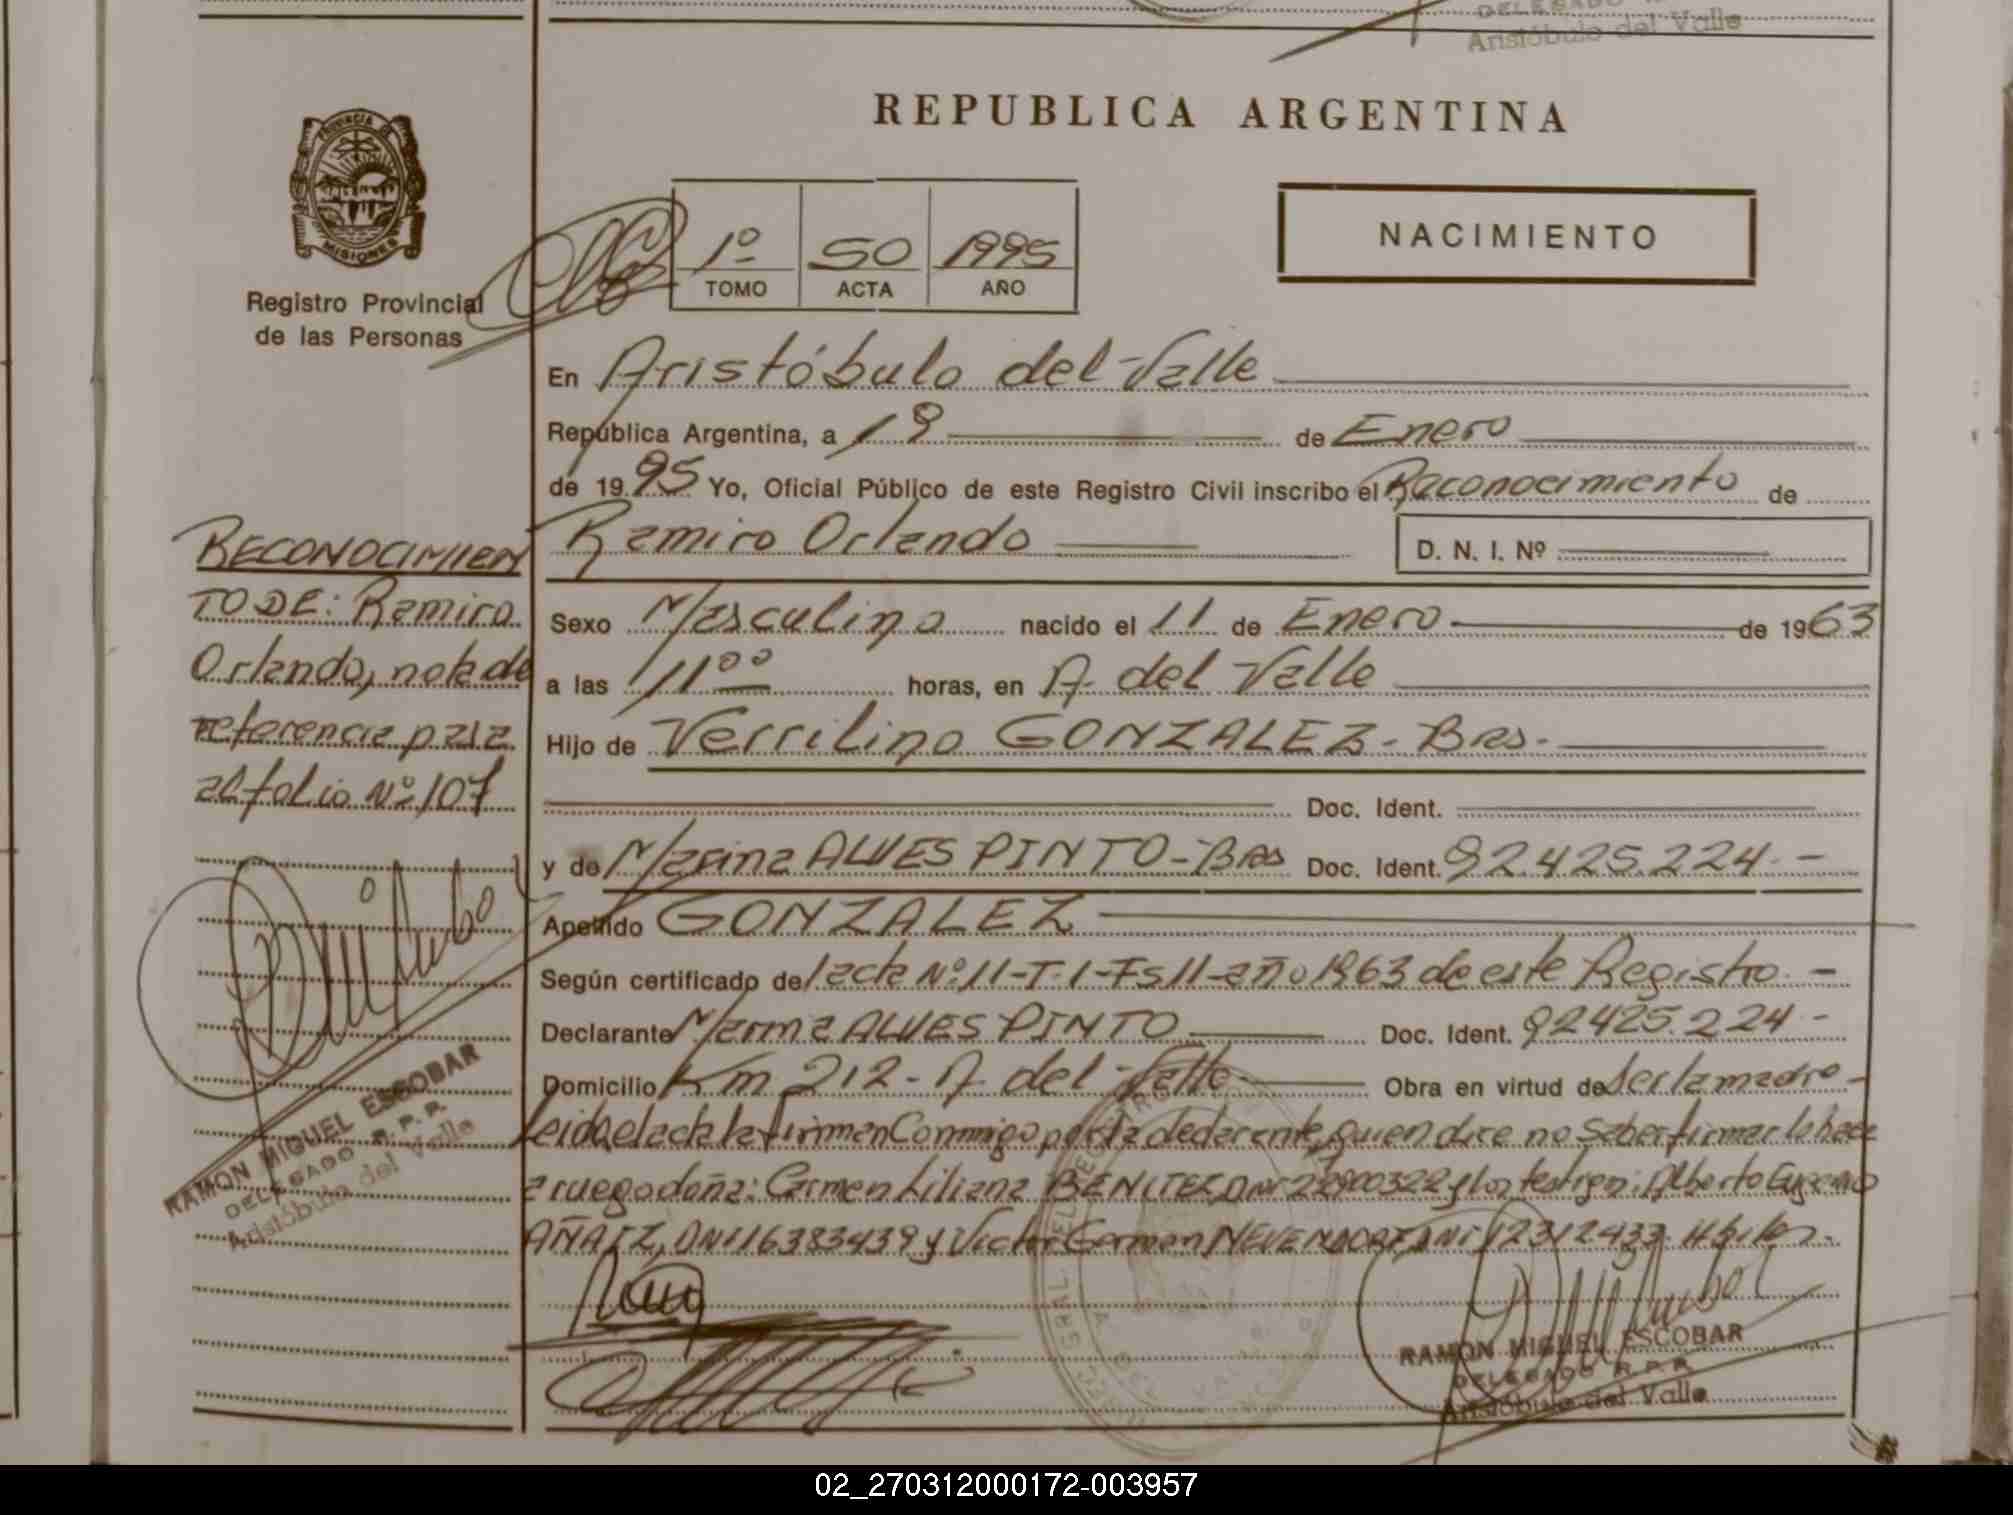 DELEGADO
Aristóbulo del Valle
REPUBLICA ARGENTINA
PROVINCIA DE
MISIONES
Registro Provincial
de las Personas
1º 50 1995
TOMO ACTA AÑO
NACIMIENTO
En Aristóbulo del Valle
República Argentina, a 19 de Enero
de 1995 Yo, Oficial Público de este Registro Civil inscribo el Reconocimiento de
Ramiro Orlando D. N. I. Nº
Sexo Masculino nacido el 11 de Enero de 1963
a las 11⁰⁰ horas, en A. del Valle
Hijo de Verrilino GONZALEZ - Bras.-
Doc. Ident.
y de Marina ALVES PINTO - Bras Doc. Ident. 92.425.224.-
Apellido GONZALEZ
Según certificado de acta Nº 11-T.1-Fs 11-año 1963 de este Registro.-
Declarante Marina ALVES PINTO Doc. Ident. 92425.224-
Domicilio Km 212 - A. del Valle Obra en virtud de ser la madre-
Leida el acta la firman Conmigo, por la declarante, quien dice no saber firmar lo hace
a ruego doña: Carmen Liliana BENITEZ DNI y los testigos: Alberto Eugenio
DNI 16383439 y Victor German DNI 12312433. Hábiles.-
RECONOCIMIEN
TO DE: Ramiro
Orlando, nota de
referencia pasa
al folio Nº 107
RAMON MIGUEL ESCOBAR
DELEGADO R. P. P.
Aristóbulo del Valle
RAMON MIGUEL ESCOBAR
DELEGADO R. P. P.
Aristóbulo del Valle
02_270312000172-003957